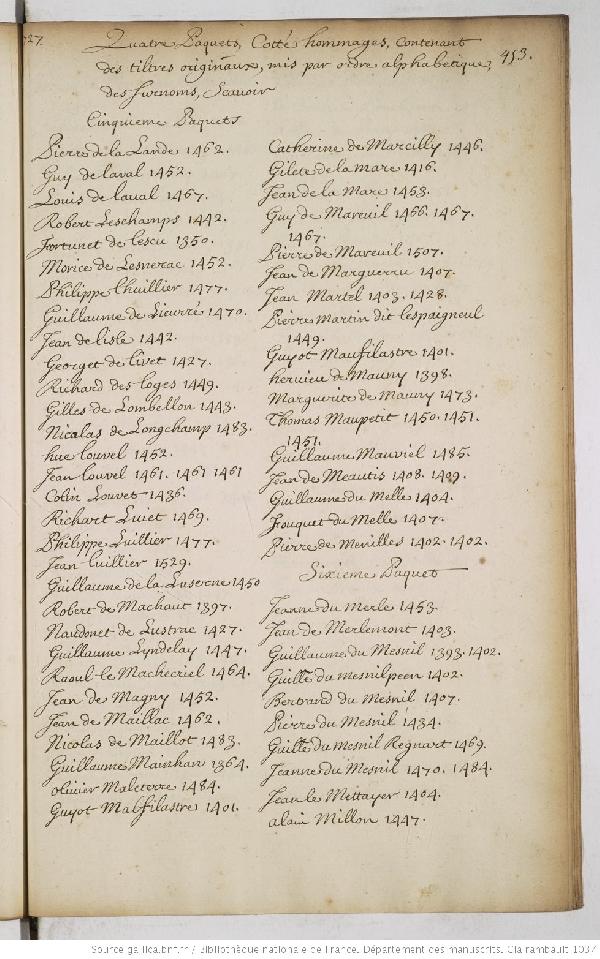 727.
453.
Quatre Paquets, Cotté hommages, contenant
des tiltres originaux, mis par ordre alphabetique,
des Surnoms, Scavoir
Cinquieme Paquets
Pierre de la Lande 1462.
Guy de laval 1452.
Louis de laval 1467.
Robert Leschamps 1442.
Fortunet de lescu 1350.
Morice de Lesnerac 1452.
Philippe lhuillier 1477.
Guillaume de Lieurré 1470.
Jean de lisle 1442.
Georget de livet 1427.
Richard des loges 1449.
Gilles de Lombellon 1443.
Nicolas de Longchamp 1483.
hue louvel 1452.
Jean louvel 1461. 1461 1461
Colin Louvet 1436.
Richart Luiet 1469.
Philippe Luillier 1477.
Jean luillier 1529.
Guillaume de la Luserne 1450
Robert de Machaut 1397.
Naudonet de Lustrac 1427.
Guillaume Lyndelay 1447.
Raoul le Machecriel 1464.
Jean de Magny 1452.
Jean de Maillac 1462.
Nicolas de Maillot 1483.
Guillaume Mainhan 1364.
olivier Maleterre 1484.
Guyot Malfilastre 1401.
Catherine de Marcilly 1446.
Gilete de la mare 1416.
Jean de la Mare 1453.
Guy de Mareuil 1466. 1467.
1467.
Pierre de Mareuil 1507.
Jean de Marguerru 1407.
Jean Martel 1403. 1428.
Pierre Martin dit lespaigneul
1449.
Guyot Maufilastre 1401.
hervieu de Mauny 1398.
Marguerite de Mauny 1473.
Thomas Maupetit 1450. 1451.
1451.
Guillaume Mauviel 1485.
Jean de Meautis 1408. 1409.
Guillaume du Melle 1404.
Fouquet du Melle 1407.
Pierre de Merilles 1402. 1402.
Sixieme Paquet
Jeanne du Merle 1453
Jean de Merlemont 1403.
Guillaume du Mesnil 1393. 1402.
Guille du mesnilpeen 1402.
Bertrand du Mesnil 1407.
Pierre du Mesnil 1434.
Guille du Mesnil Regnart 1469.
Jeanne du Mesnil 1470. 1484.
Jean le Mettayer 1404.
alain Millon 1447.
Source gallica.bnf.fr / Bibliothèque nationale de France. Département des manuscrits. Clairambault 1037